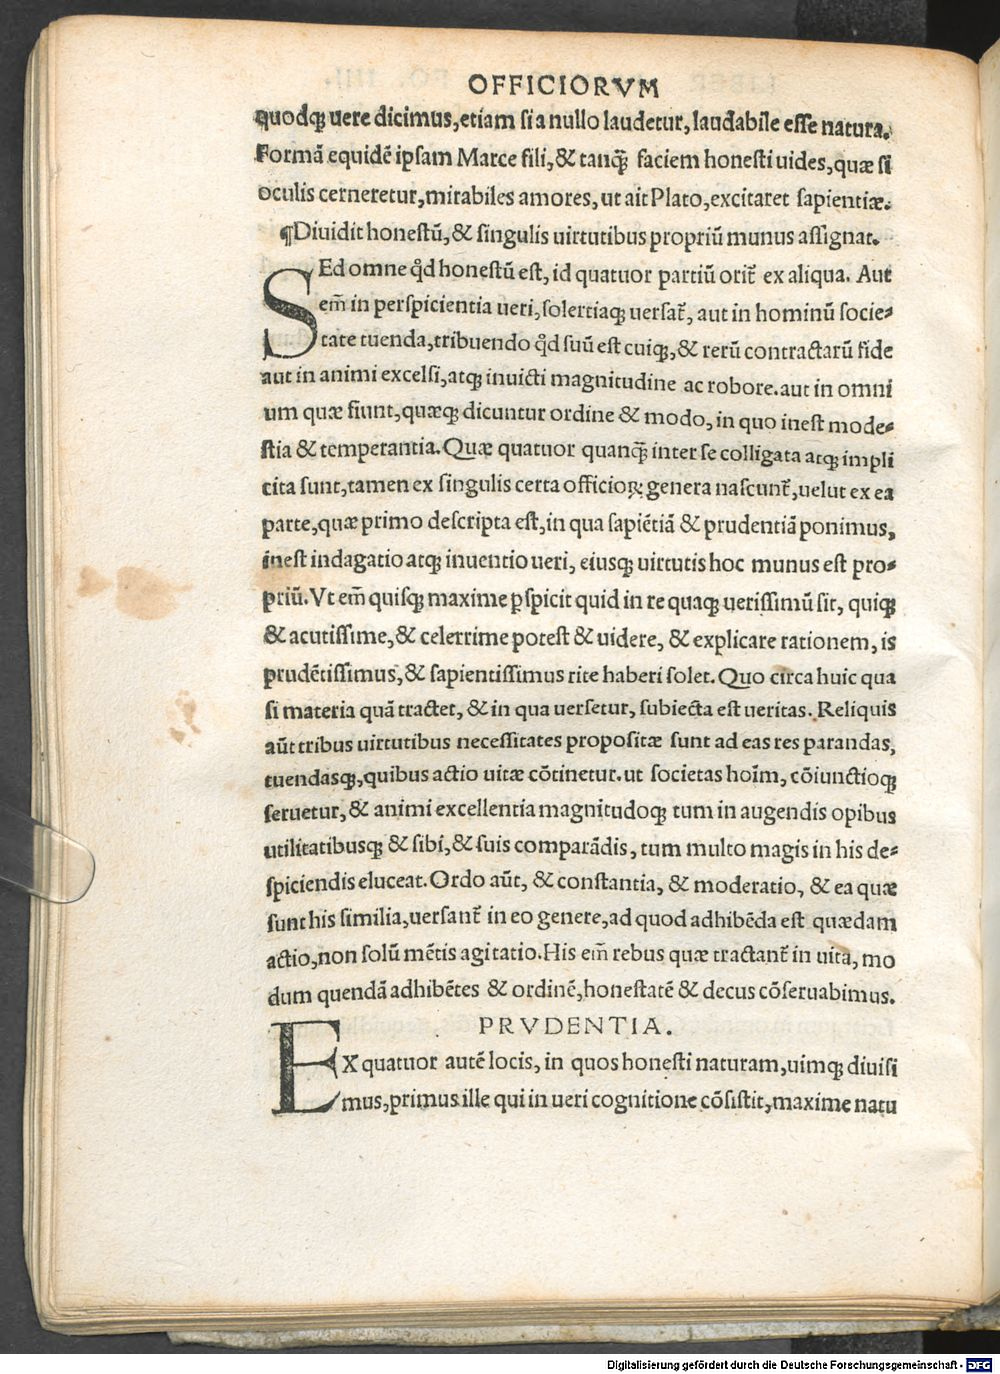 OFFICIORVM
quodq́ꝫ uere dicimus, etiam si a nullo laudetur, laudabile esse natura.
Formā equidē ipsam Marce fili, & tanq̄ faciem honesti uides, quæ si
oculis cerneretur, mirabiles amores, ut ait Plato, excitaret sapientiæ.
¶Diuidit honestū, & singulis uirtutibus propriū munus assignat.
SEd omne qd̓ honestū est, id quatuor partiū orit᷑ ex aliqua. Aut
em̄ in perspicientia ueri, solertiaqꝫ uersat᷑, aut in hominū socie-
tate tuenda, tribuendo qd̓ suū est cuiqꝫ, & rerū contractarū fide
aut in animi excelsi, atqꝫ inuicti magnitudine ac robore. aut in omni
um quæ fiunt, quæqꝫ dicuntur ordine & modo, in quo inest mode-
stia & temperantia. Quæ quatuor quanq̄ inter se colligata atqꝫ impli
cita sunt, tamen ex singulis certa officioꝝ genera nascunt᷑, uelut ex ea
parte, quæ primo descripta est, in qua sapiētiā & prudentiā ponimus,
inest indagatio atqꝫ inuentio ueri, eiusqꝫ uirtutis hoc munus est pro-
priū. Vt em̄ quisqꝫ maxime ꝑspicit quid in re quaqꝫ uerissimū sit, quiqꝫ
& acutissime, & celerrime potest & uidere, & explicare rationem, is
prudētissimus, & sapientissimus rite haberi solet. Quo circa huic qua
si materia quā tractet, & in qua uersetur, subiecta est ueritas. Reliquis
aūt tribus uirtutibus necessitates propositæ sunt ad eas res parandas,
tuendasqꝫ, quibus actio uitæ cōtinetur. ut societas hoīm, cōiunctioqꝫ
seruetur, & animi excellentia magnitudoqꝫ tum in augendis opibus
utilitatibusqꝫ & sibi, & suis comparādis, tum multo magis in his de-
spiciendis eluceat. Ordo aūt, & constantia, & moderatio, & ea quæ
sunt his similia, uersant᷑ in eo genere, ad quod adhibēda est quædam
actio, non solū mētis agitatio. His em̄ rebus quæ tractant᷑ in uita, mo
dum quendā adhibētes & ordinē, honestatē & decus cōseruabimus.
PRVDENTIA.
EX quatuor autē locis, in quos honesti naturam, uimqꝫ diuisi
mus, primus ille qui in ueri cognitione cōsistit, maxime natu
Digitalisierung gefördert durch die Deutsche Forschungsgemeinschaft - DFG